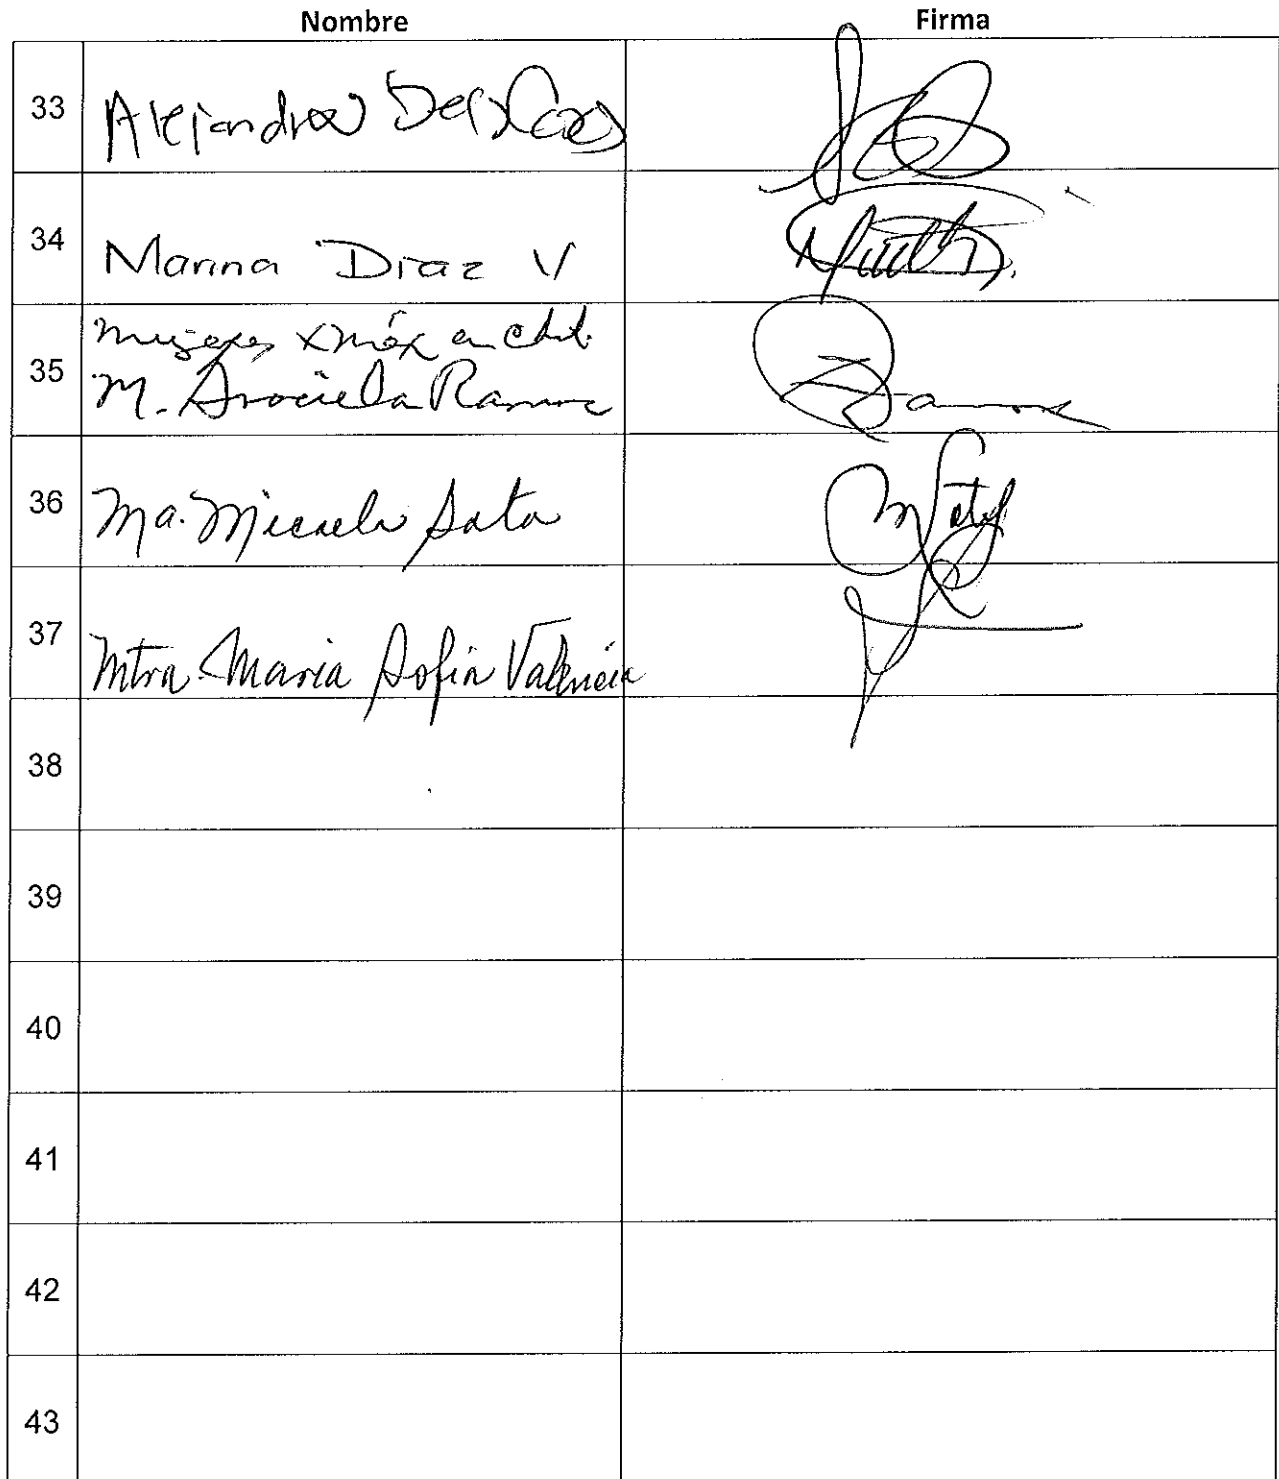 Nombre Firma
33 Alejandra
34 Marina Diaz V
mujeres x méx en
35 M. Graciela Ramos
36 Ma. Micaela Soto
37 Mtra. Maria Sofia Valencia
38
39
40
41
42
43